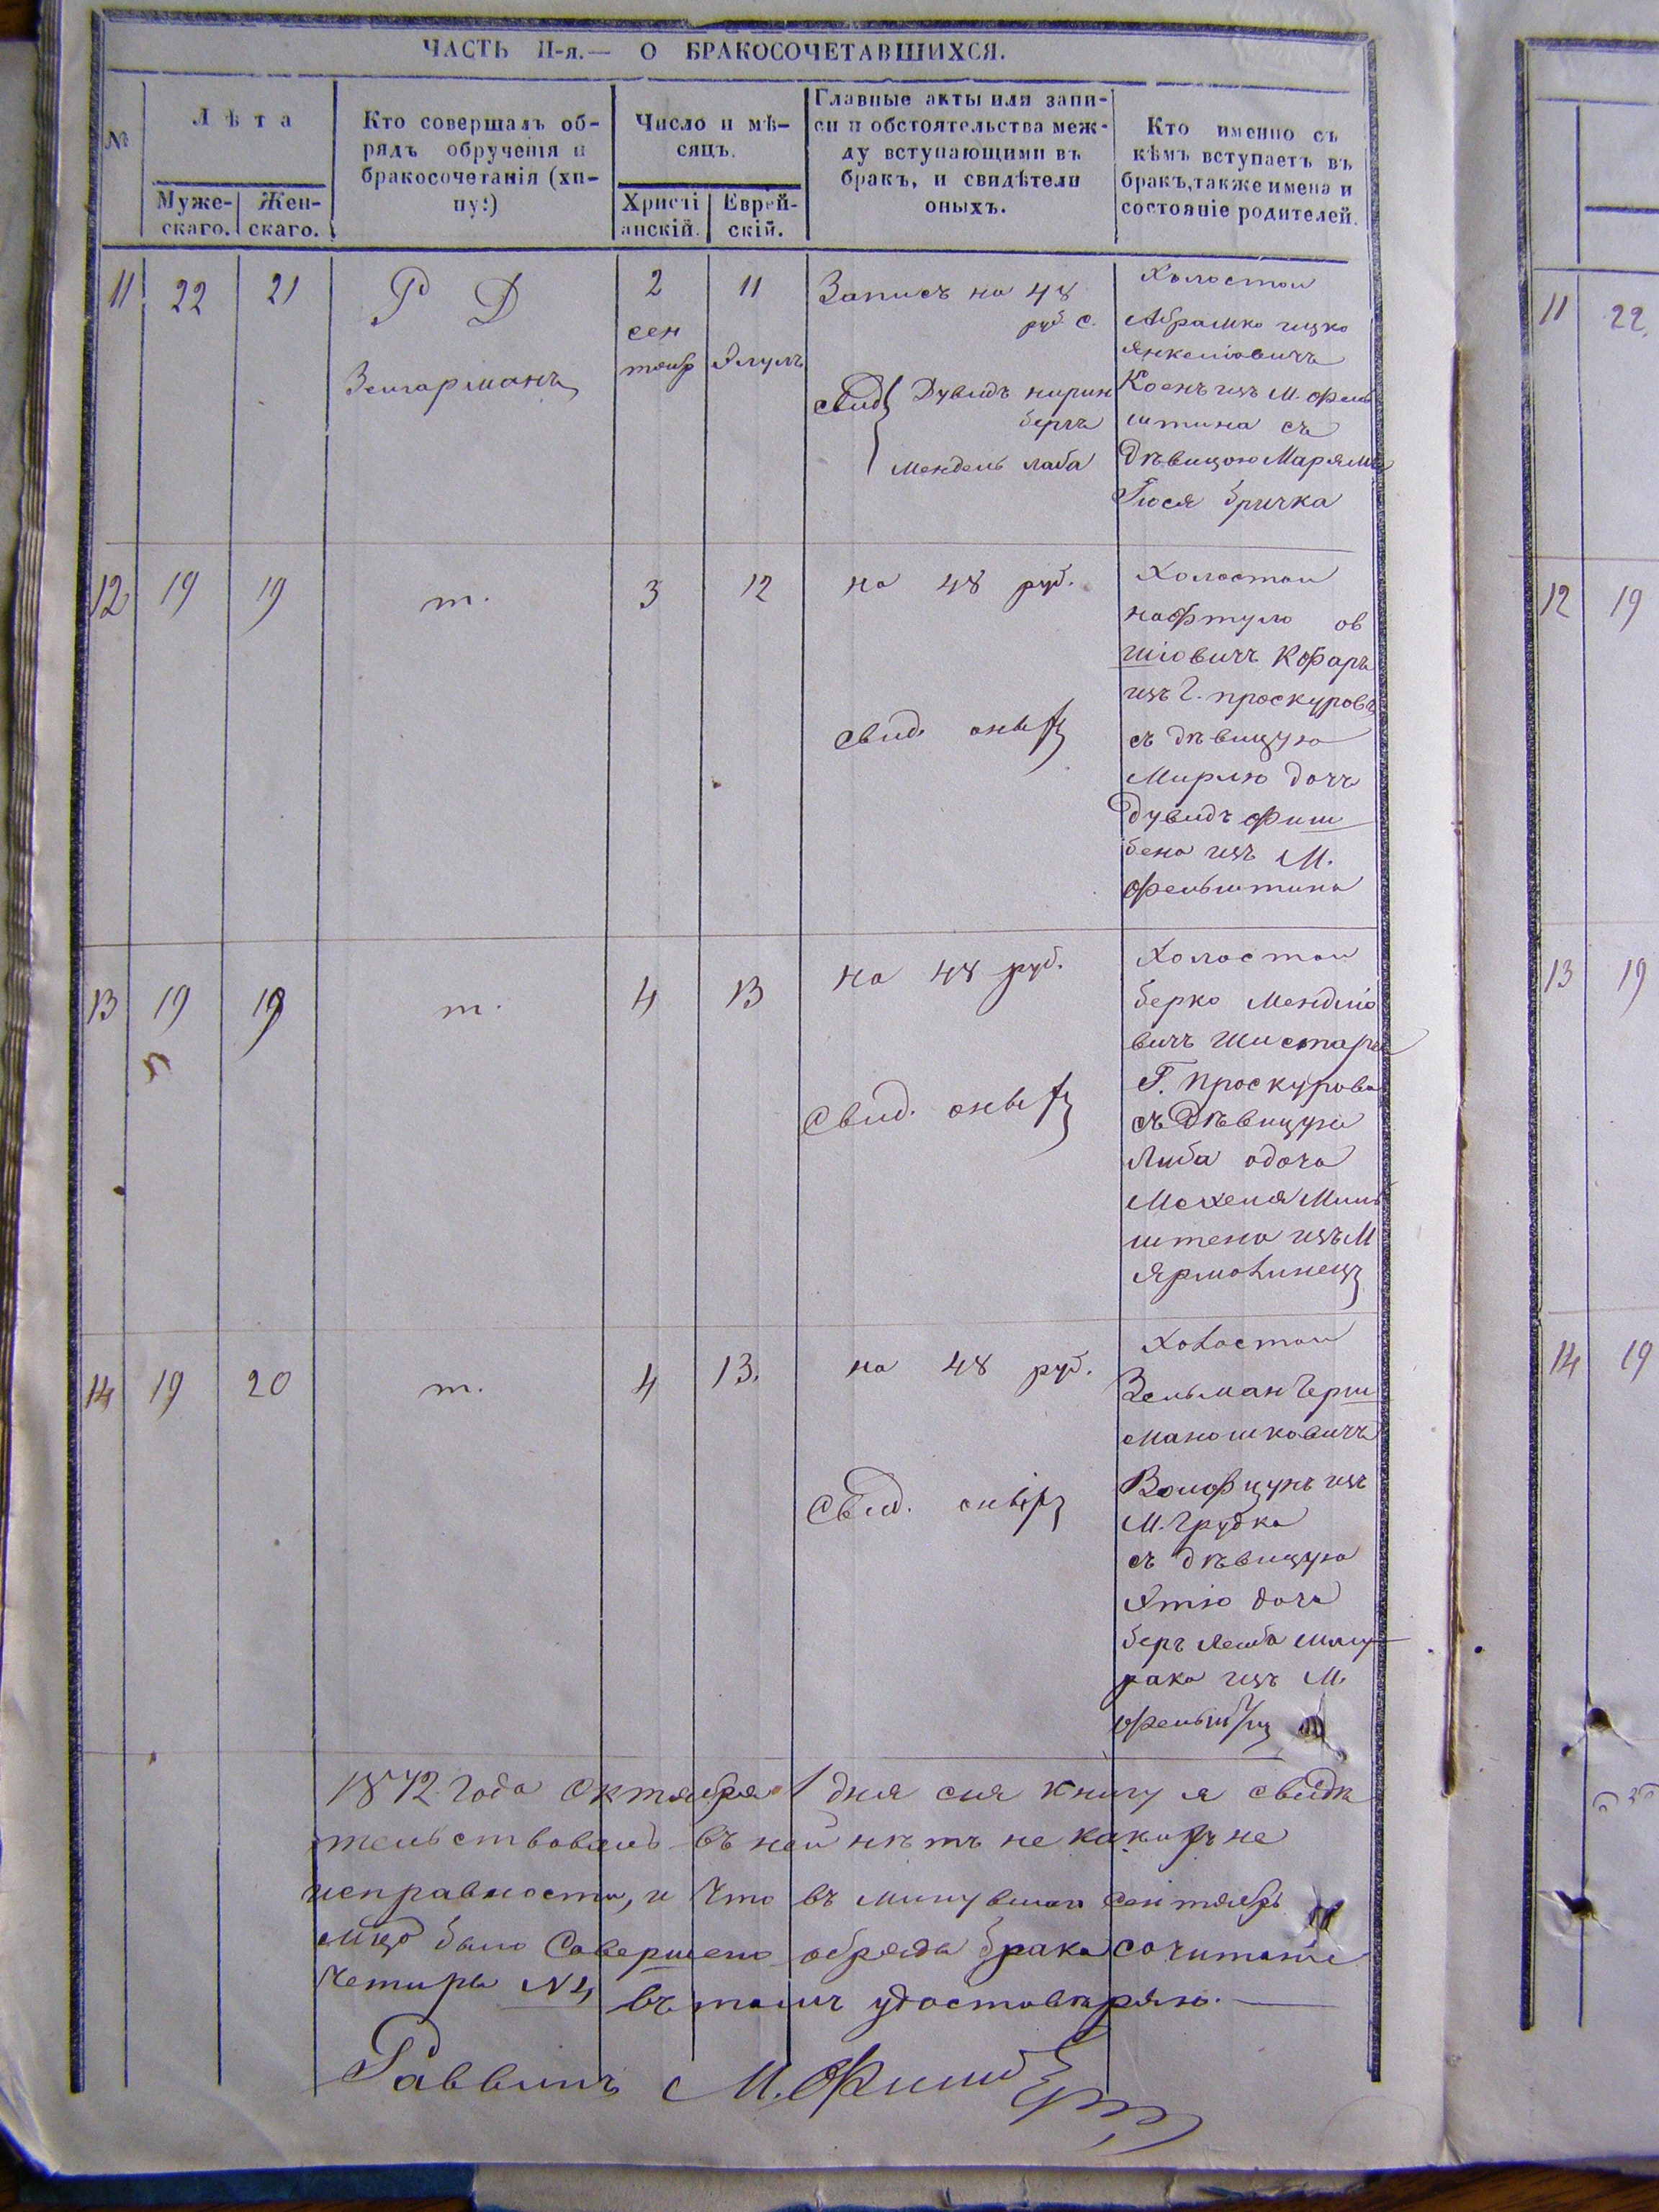 ЧАСТЬ II-я.— О БРАКОСОЧЕТАВШИХСЯ.
№
Лѣта
Муже-
скаго.
Жен-
скаго.
Кто совершалъ об-
рядъ обрученія и
бракосочетанія (хи-
пу:)
Число и мѣ-
сяцъ.
Христі
анскій.
Еврей-
скій.
Главные акты или запи-
си и обстоятельства меж-
ду вступающими въ
бракъ, и свидѣтели
оныхъ.
Кто именно съ
кѣмъ вступаетъ въ
бракъ, также имена и
состояніе родителей.
11 22 21
Р Д
Зейгарманъ
2
сен
тябр
11
Элулъ
Записъ на 48
руб. с.
свид Дувидъ нирин
бергъ
Мендель лаба
Холостои
Абрамко ицко
Янкеліовичъ
Коенъ изъ М. Фель
штина съ
Дѣвицою Марямъ
Гюся бричка
12 19 19
т.
3 12
на 48 руб.
свид. оныхъ
Холостои
нафтуло ов
шіовичъ Кофаръ
изъ г. проскуровъ
съ дѣвицую
Мирлю дочъ
Дувидъ Фиш
бена изъ М.
Фельштина
13 19 19
т.
4 13
на 48 руб.
Свид. оныхъ
Холостои
берко Менделіо
вичъ Шистаръ
Г. проскурова
съ Дѣвицую
Либа одоча
Мехеля Миль
штена изъ М
Ярмолинецъ
14 19 20
т.
4 13.
на 48 руб.
Свид. оныхъ
Холостои
Зельман Герш
Маношковичъ
Волфцунъ изъ
М. Грудка
съ дѣвицую
Хтю доча
беръ Леиба шму
рака изъ М.
Фельшт
1872 года Октября 1 дня сия книгу я свидѣ
тельствовалъ въ неи нѣтъ не какихъ не
исправности, и что въ минувшом сентябръ
мцѣ было Совершено обряда брака сочитание
Четиры №4 въ томъ удостовѣряю.
Раввинъ М. Фишб
11 22.
12 19
13 19
14 19